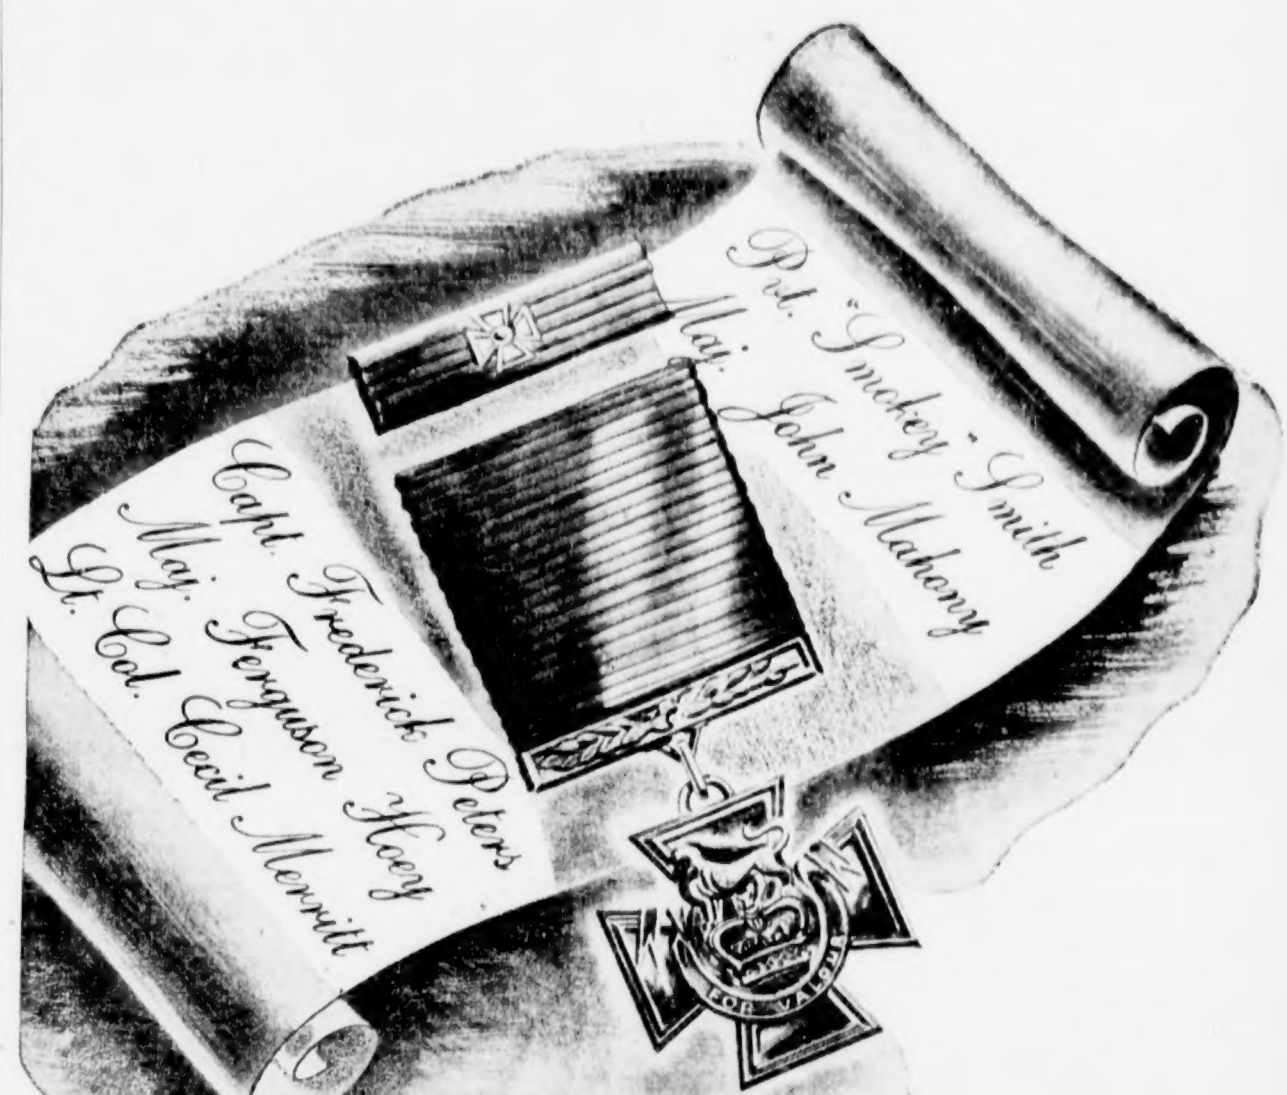 Pvt. "Smokey" Smith
Maj. John Mahony
Capt. Frederick Peters
Maj. Ferguson Hoey
Lt. Col. Cecil Merritt
FOR VALOUR